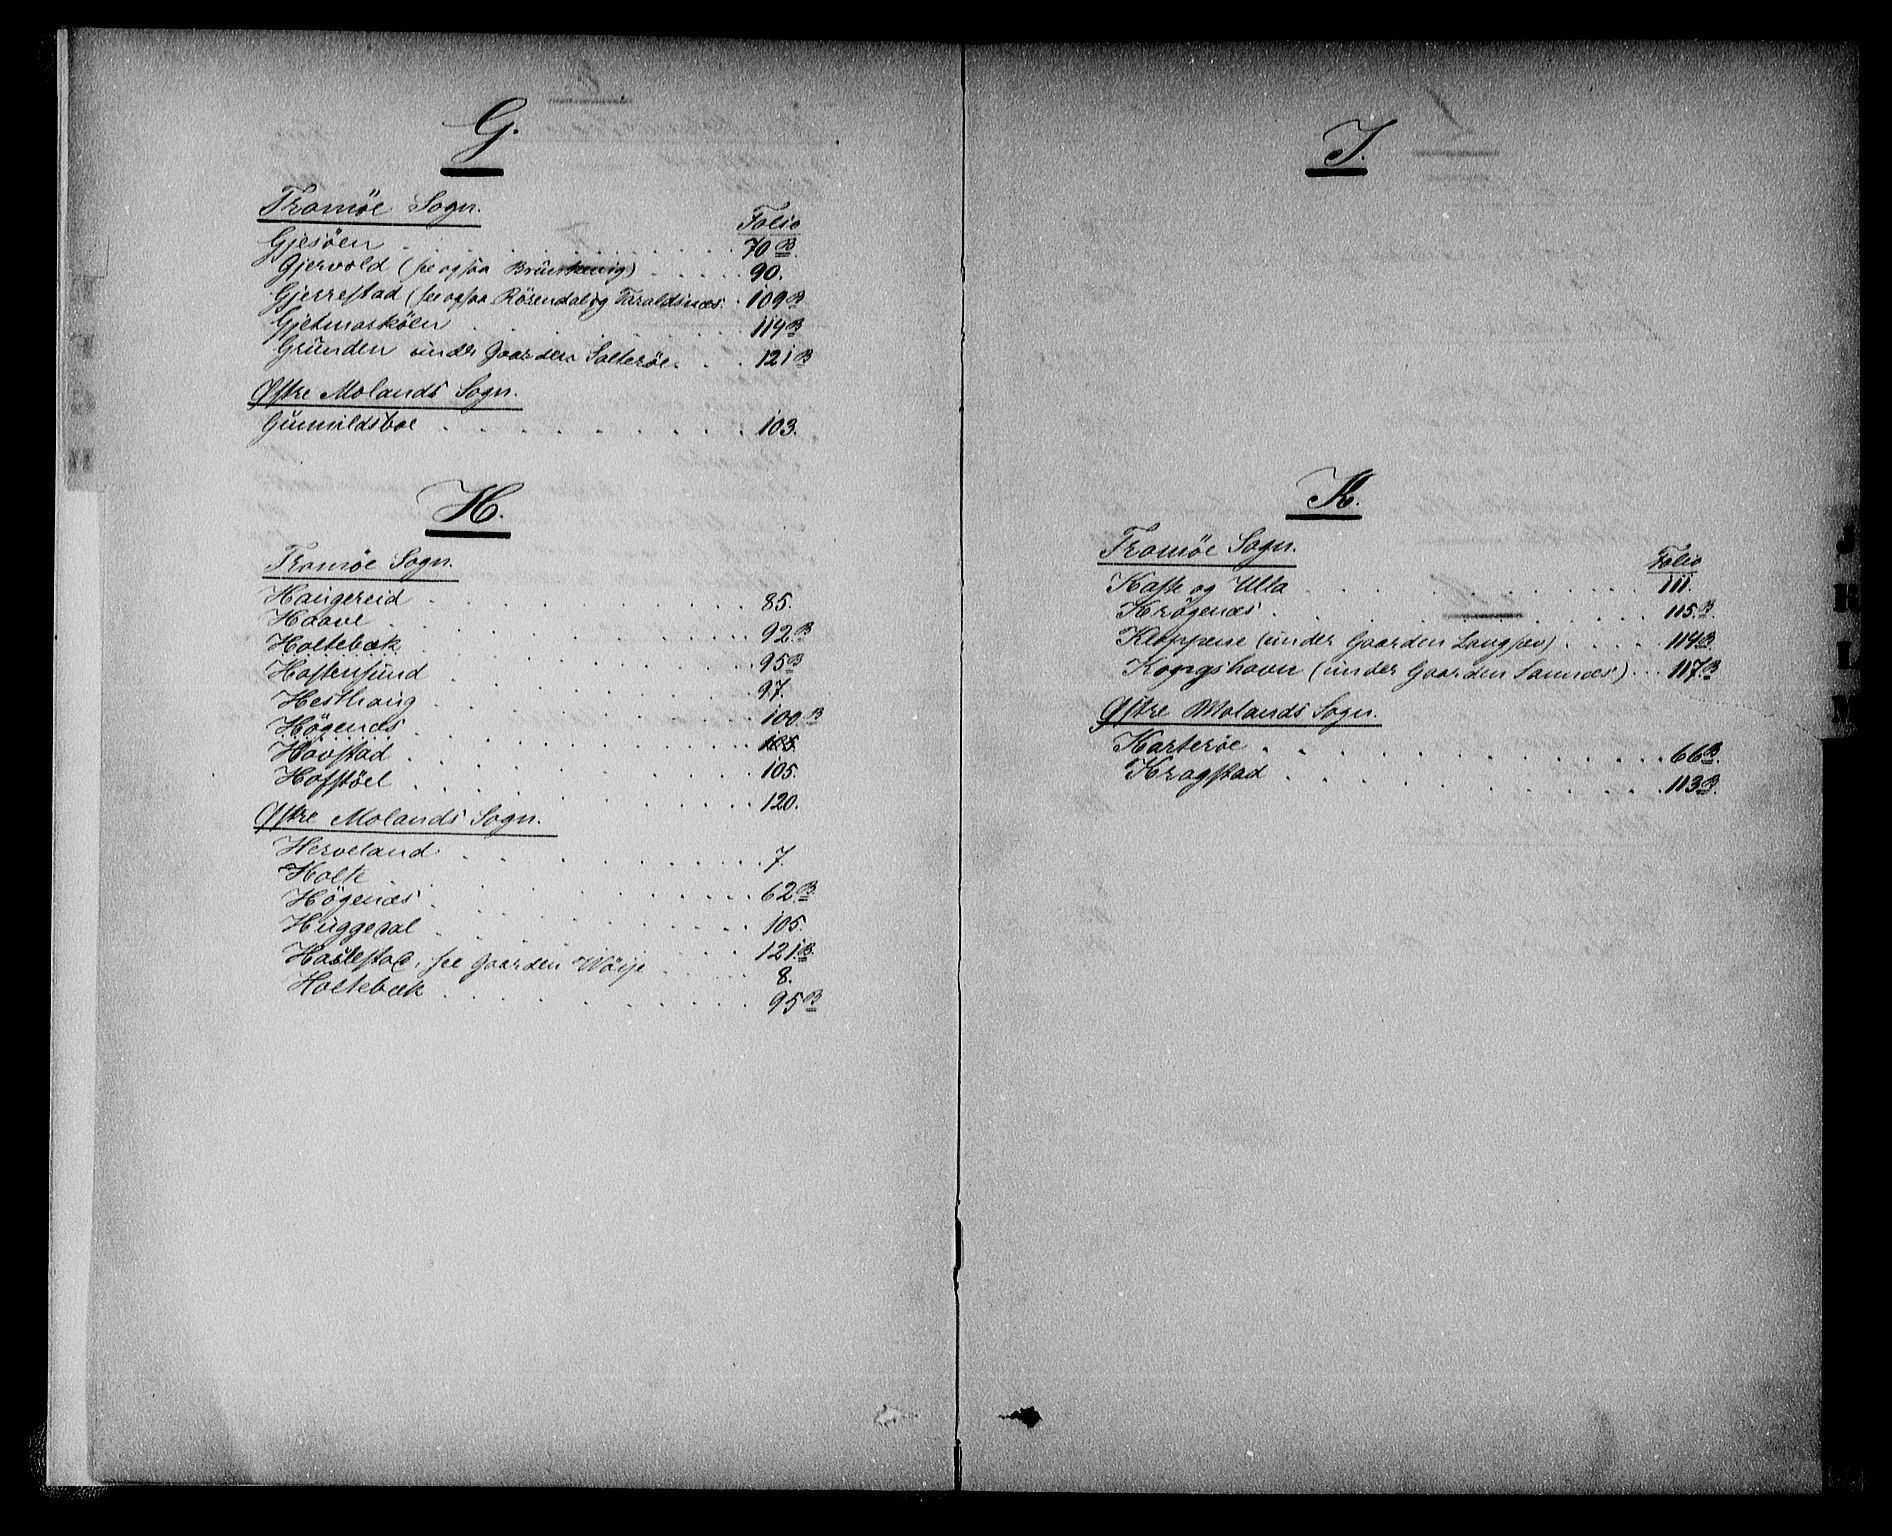 G.
Tromöe Sogn.
Folio
Gjesöen 70 B
Gjervold (see ogsaa 90.
Gjerrestad (see ogsaa Rösendal og Taraldsnæs. 109 B
Gjetmarskölen 114 B
Gründen under Gaarden Salteröe. 121 B
Østre Molands Sogn.
Günnildsboe 103.
H.
Tromöe Sogn.
Haugereid 85.
Haave 92. B
Holtebæk 95 B
Hastensünd 97.
Hesthaug 100. B
Högenæs 105.
Havstad 105.
Hofstöel 120.
Østre Molands Sogn.
Herveland 7.
Holte 62. B
Högenæs 105.
Huggedal 121. B
see Gaarden 8.
Holtebæk 95 B
I.
K.
Tromöe Sogn.
Folio
Kaste og Ulla 111.
Krögenæs 115. B
Kloppene (under Gaarden Langsæv) 114 B
Kongshavn (under Gaarden Sannæs.) 117. B
Østre Molands Sogn.
Karteröe 66 B
Kragstad 113 B
J
K
L
M